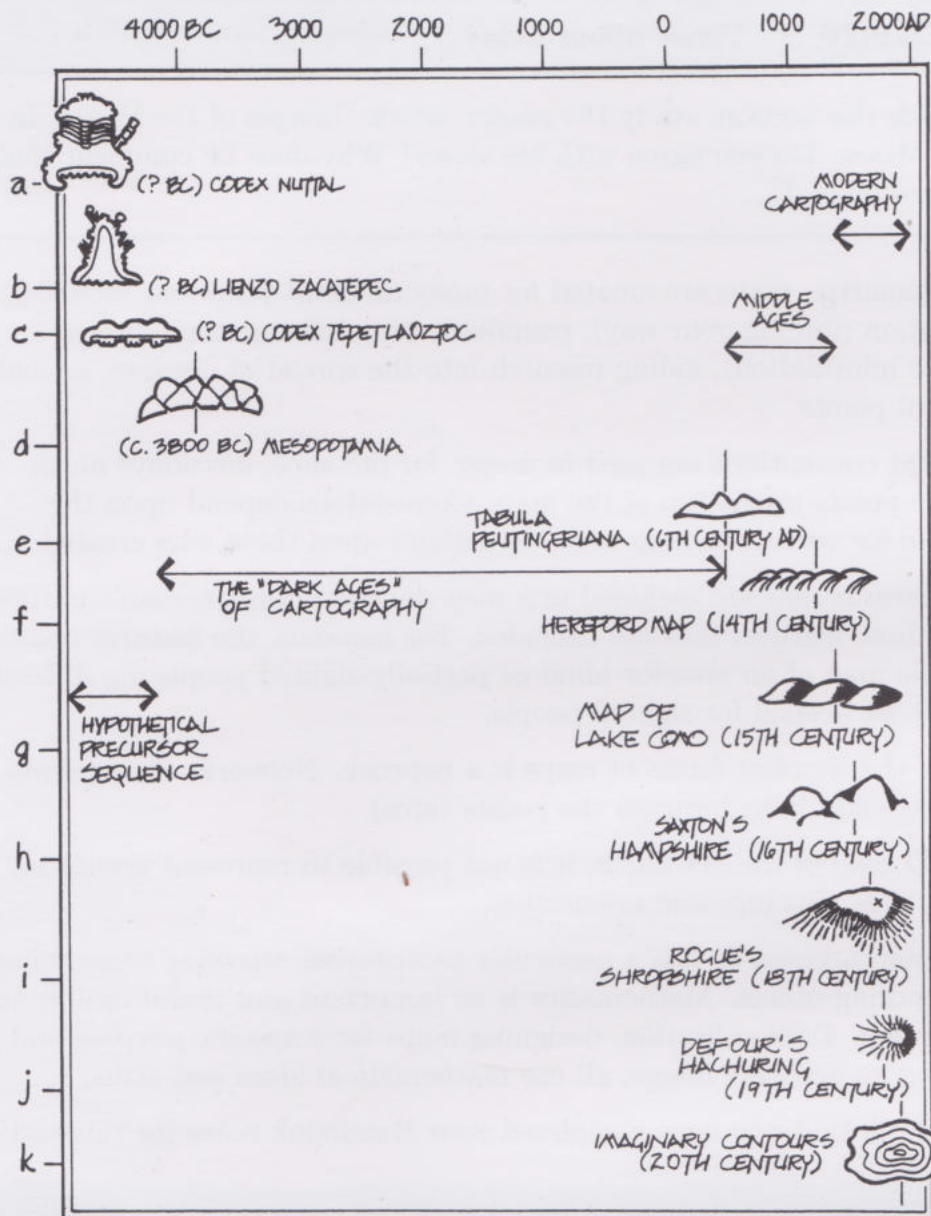 4000 BC 3000 2000 1000 0 1000 2000 AD
a
(? BC) CODEX NUTTAL
MODERN
CARTOGRAPHY
b
(? BC) LIENZO ZACATEPEC
MIDDLE
AGES
c
(? BC) CODEX TEPETLAOZTOC
d
(C. 3800 BC) MESOPOTAMIA
e
TABULA
PEUTINGERIANA (6TH CENTURY AD)
THE "DARK AGES"
OF CARTOGRAPHY
f
HEREFORD MAP (14TH CENTURY)
HYPOTHETICAL
PRECURSOR
SEQUENCE
g
MAP OF
LAKE COMO (15TH CENTURY)
SAXTON'S
HAMPSHIRE (16TH CENTURY)
h
x
ROGUE'S
SHROPSHIRE (18TH CENTURY)
i
DEFOUR'S
HACHURING
(19TH CENTURY)
j
IMAGINARY CONTOURS
(20TH CENTURY)
k